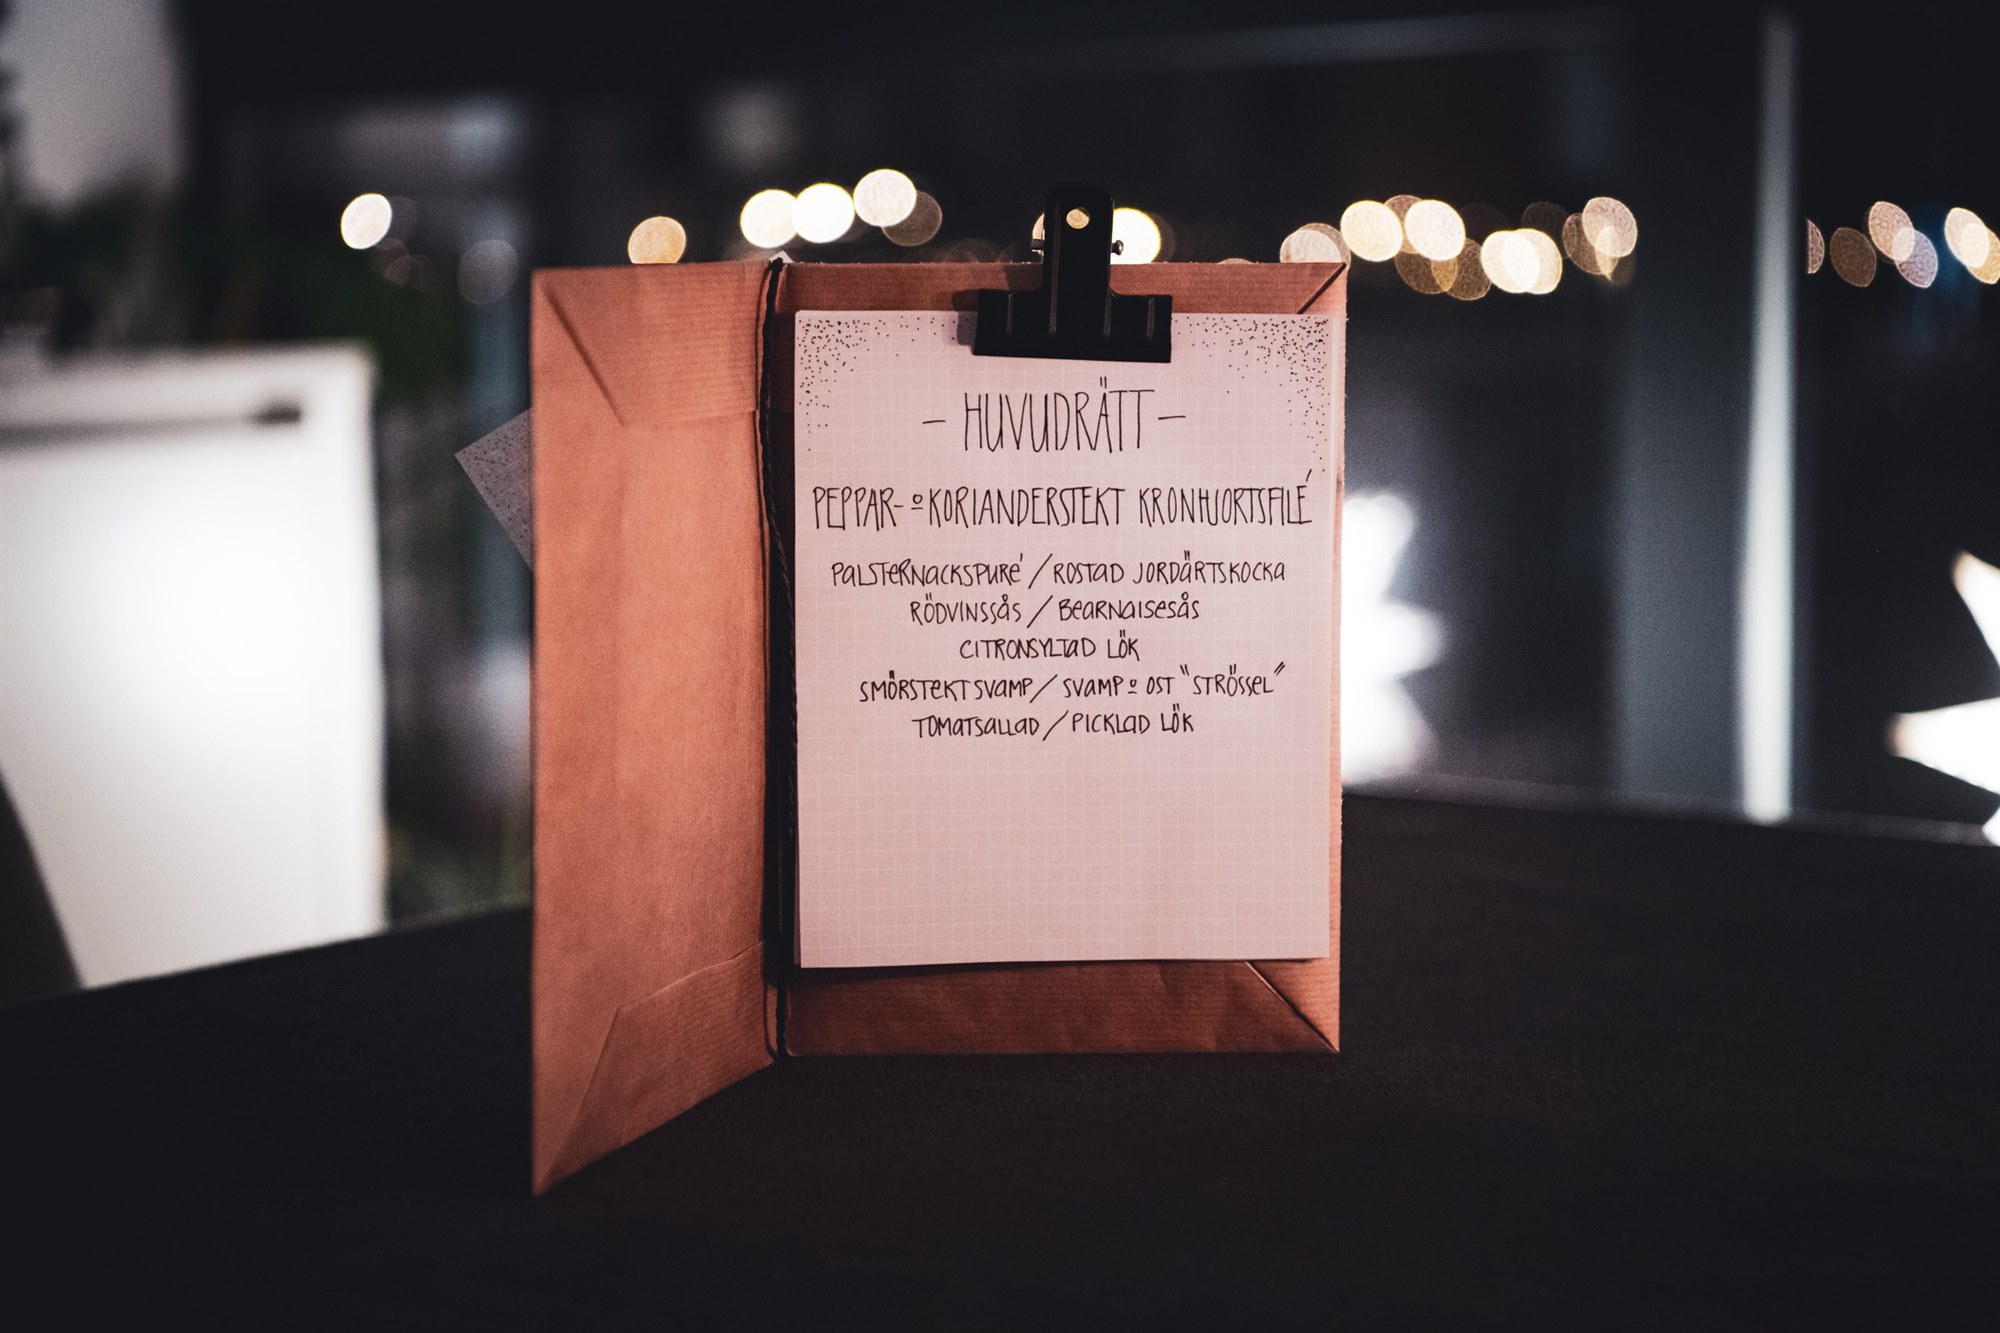 - HUVUDRÄTT -
PEPPAR- o KORIANDERSTEKT KRONHJORTSFILÉ
PALSTERNACKSPURÉ / ROSTAD JORDÄRTSKOCKA
RÖDVINSSÅS / BEARNAISESÅS
CITRONSYLTAD LÖK
SMÖRSTEKT SVAMP / SVAMP o OST "STRÖSSEL"
TOMATSALLAD / PICKLAD LÖK